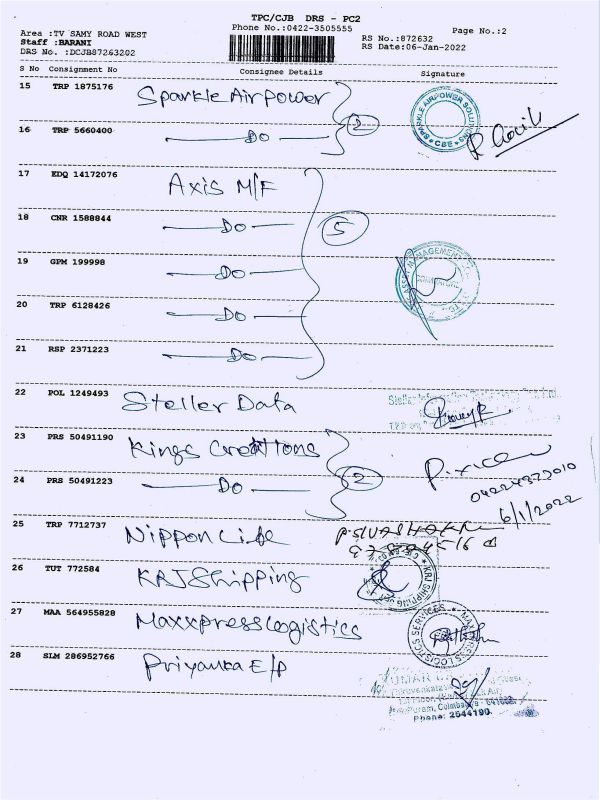 TPC/CJB DRS - PC2
Phone No.:0422-3505555
Page No.:2
Area :TV SAMY ROAD WEST
Staff :BARANI
DRS No. :DCJB87263202
RS No.:872632
RS Date:06-Jan-2022
S No Consignment No Consignee Details Signature
15 TRP 1875176 Sparkle Airpower 2
SPARKLE AIRPOWER SOLUTIONS * CBE *
16 TRP 5660400 Do
17 EDQ 14172076 Axis M/F
18 CNR 1588844 Do 5
19 GPM 199998 Do
MANAGEMENT
20 TRP 6128426 Do
21 RSP 2371223 Do
22 POL 1249493 Steller Data
23 PRS 50491190 Kings Creations
24 PRS 50491223 Do 2
04224372010
6/1/2022
25 TRP 7712737 Nippon Life
26 TUT 772584 KRJ Shipping
KRJ SHIPPING
27 MAA 564955828 Maxxpress Logistics
MAXXPRESS LOGISTICS SERVICES
28 SLM 286952766 Priyanka E/P
Puram, Coimbatore - 641002.
Phone: 2544190